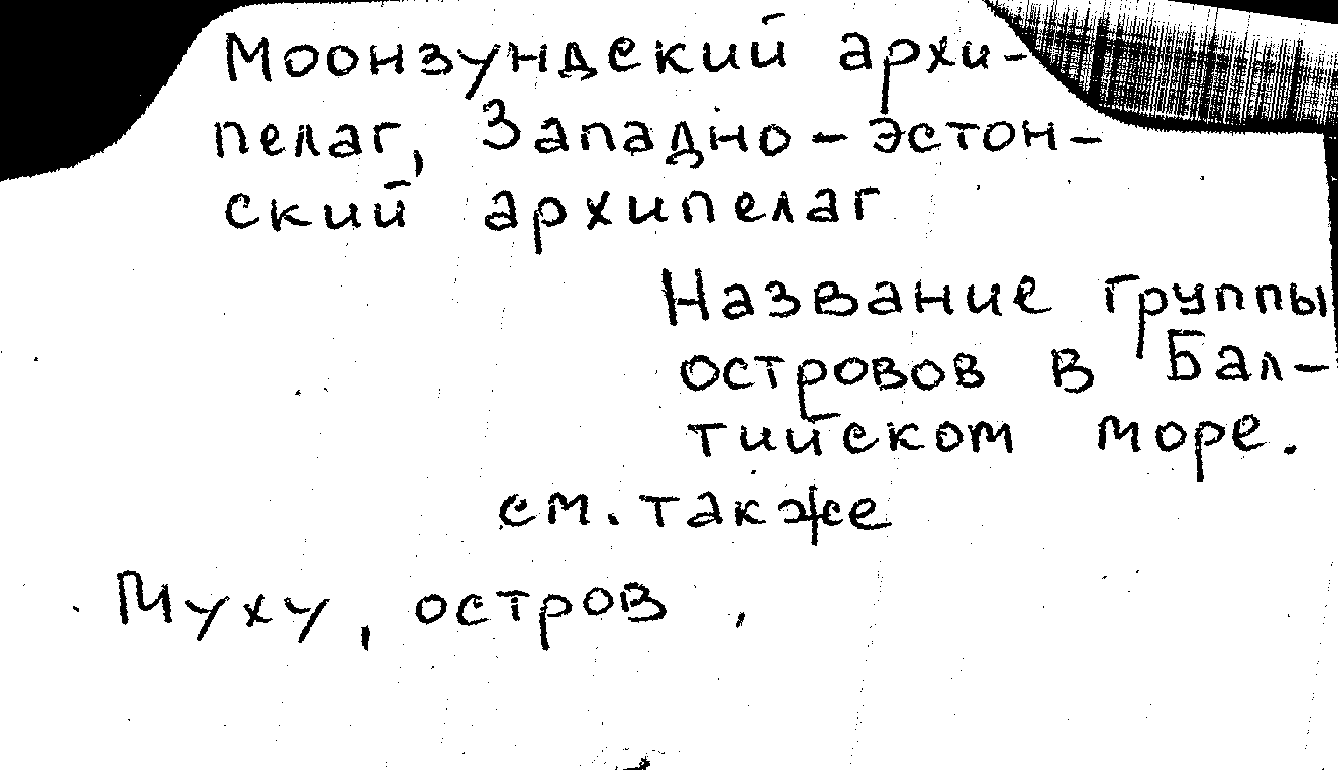 Моонзундский архи-
пелаг, Западно-эстон-
ский архипелаг
Название группы
островов в Бал-
тийском море.
см. также
Муху, остров